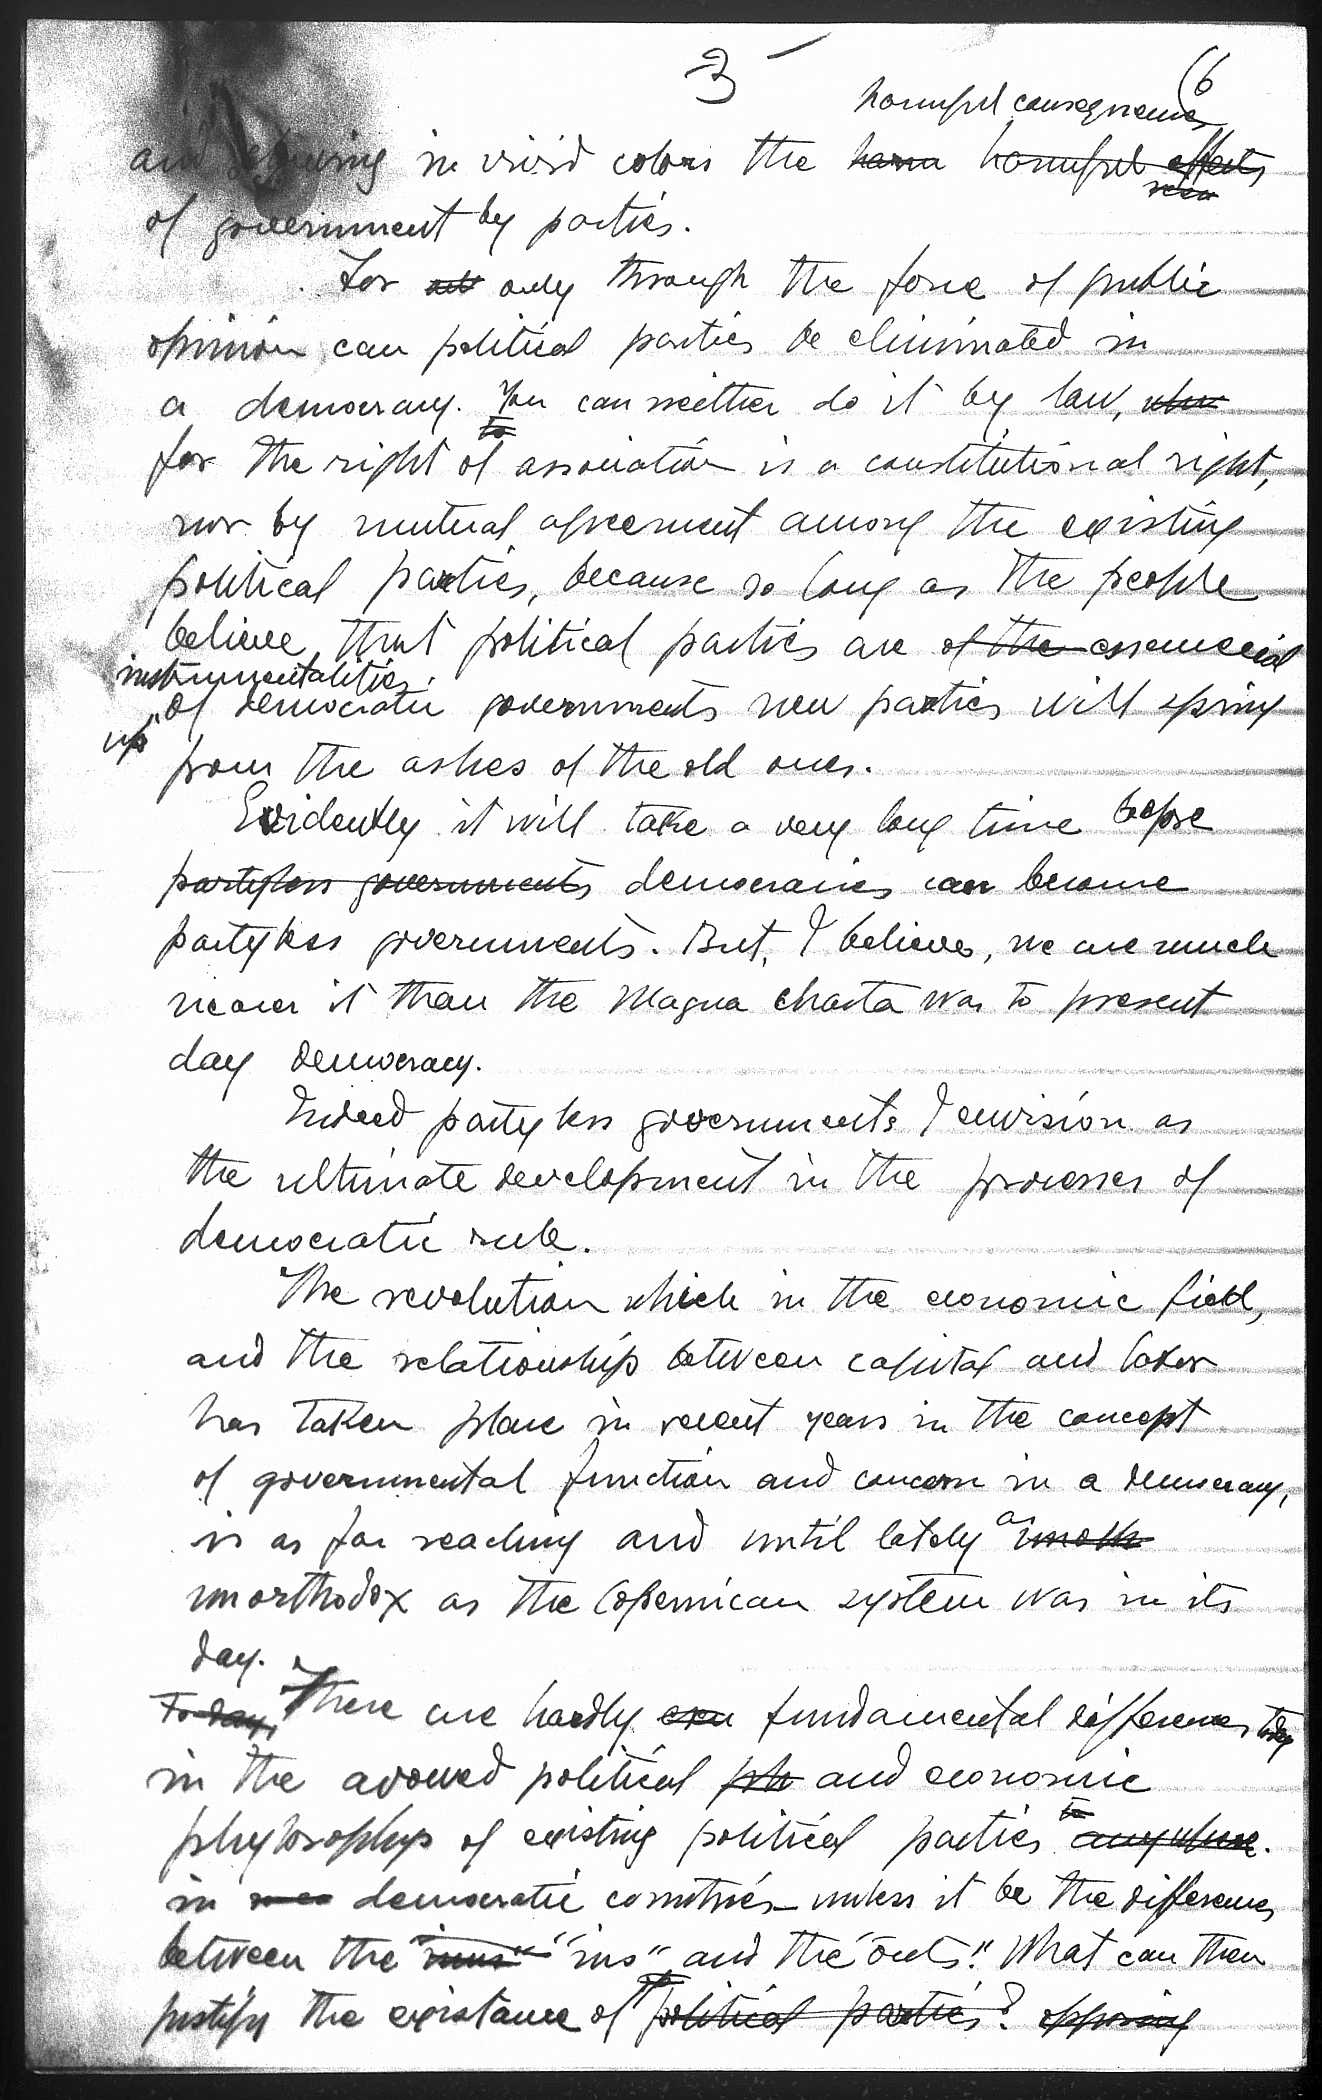 3 -
6
harmful consequences
and in vivid colors the harm harmful effects
of government by parties.
For only through the force of public
opinion can political parties be eliminated in
a democracy. You can neither do it by law,
to
for the right of association is a constitutional right,
nor by mutual agreement among the existing
political parties, because so long as the people
believe that political parties are of the essemecial
instrumentalities
of democratic governments new parties will spring
up
from the ashes of the old ones.
Evidently it will take a very long time before
partyless governments democracies can become
partyless governments. But, I believe, we are much
nearer it than the Magna Charta was to present
day democracy.
Indeed partyless governments I envision as
the ultimate development in the processes of
democratic rule.
The revolution which in the economic field,
and the relationship between capital and labor
has taken place in recent years in the concept
of governmental function and concern in a democracy,
is as far reaching and until lately as unoth
unorthodox as the Copernican system was in its
day.
Today, There are hardly even fundamental differences today
in the avowed political ph and economic
phylosophys of existing political parties anywhere.
in democratic countries unless it be the differences
between the "inns" "ins" and the "outs". What can then
justify the existance of political parties? opposing